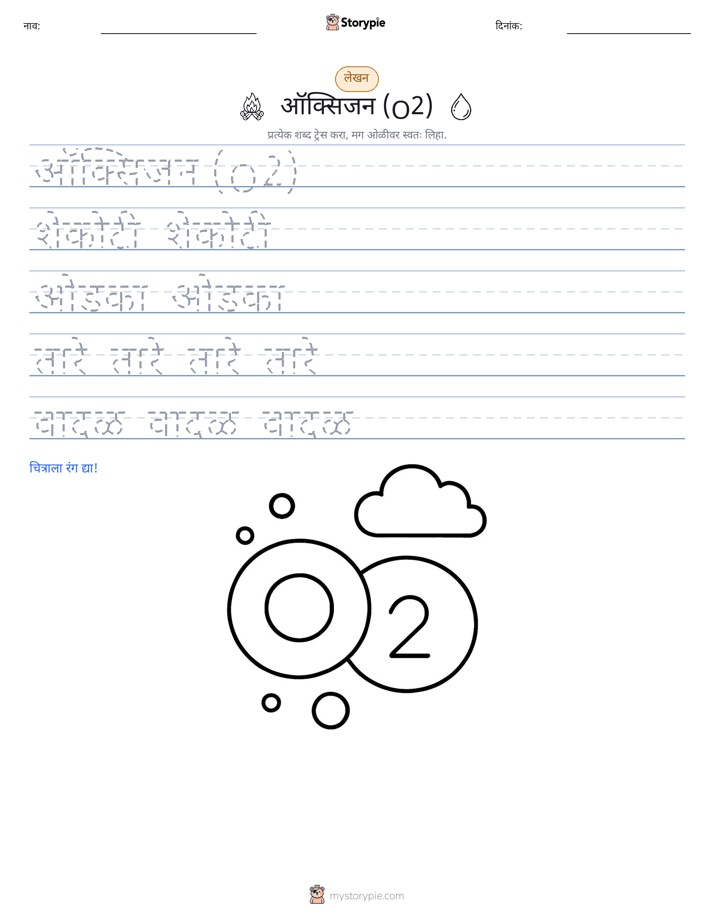 नाव: Storypie दिनांक:
लेखन
ऑक्सिजन (O2)
प्रत्येक शब्द ट्रेस करा, मग ओळीवर स्वतः लिहा.
ऑक्सिजन (O2)
शेकोटी शेकोटी
ओंडका ओंडका
तारे तारे तारे तारे
वादळ वादळ वादळ
चित्राला रंग द्या!
O 2
mystorypie.com